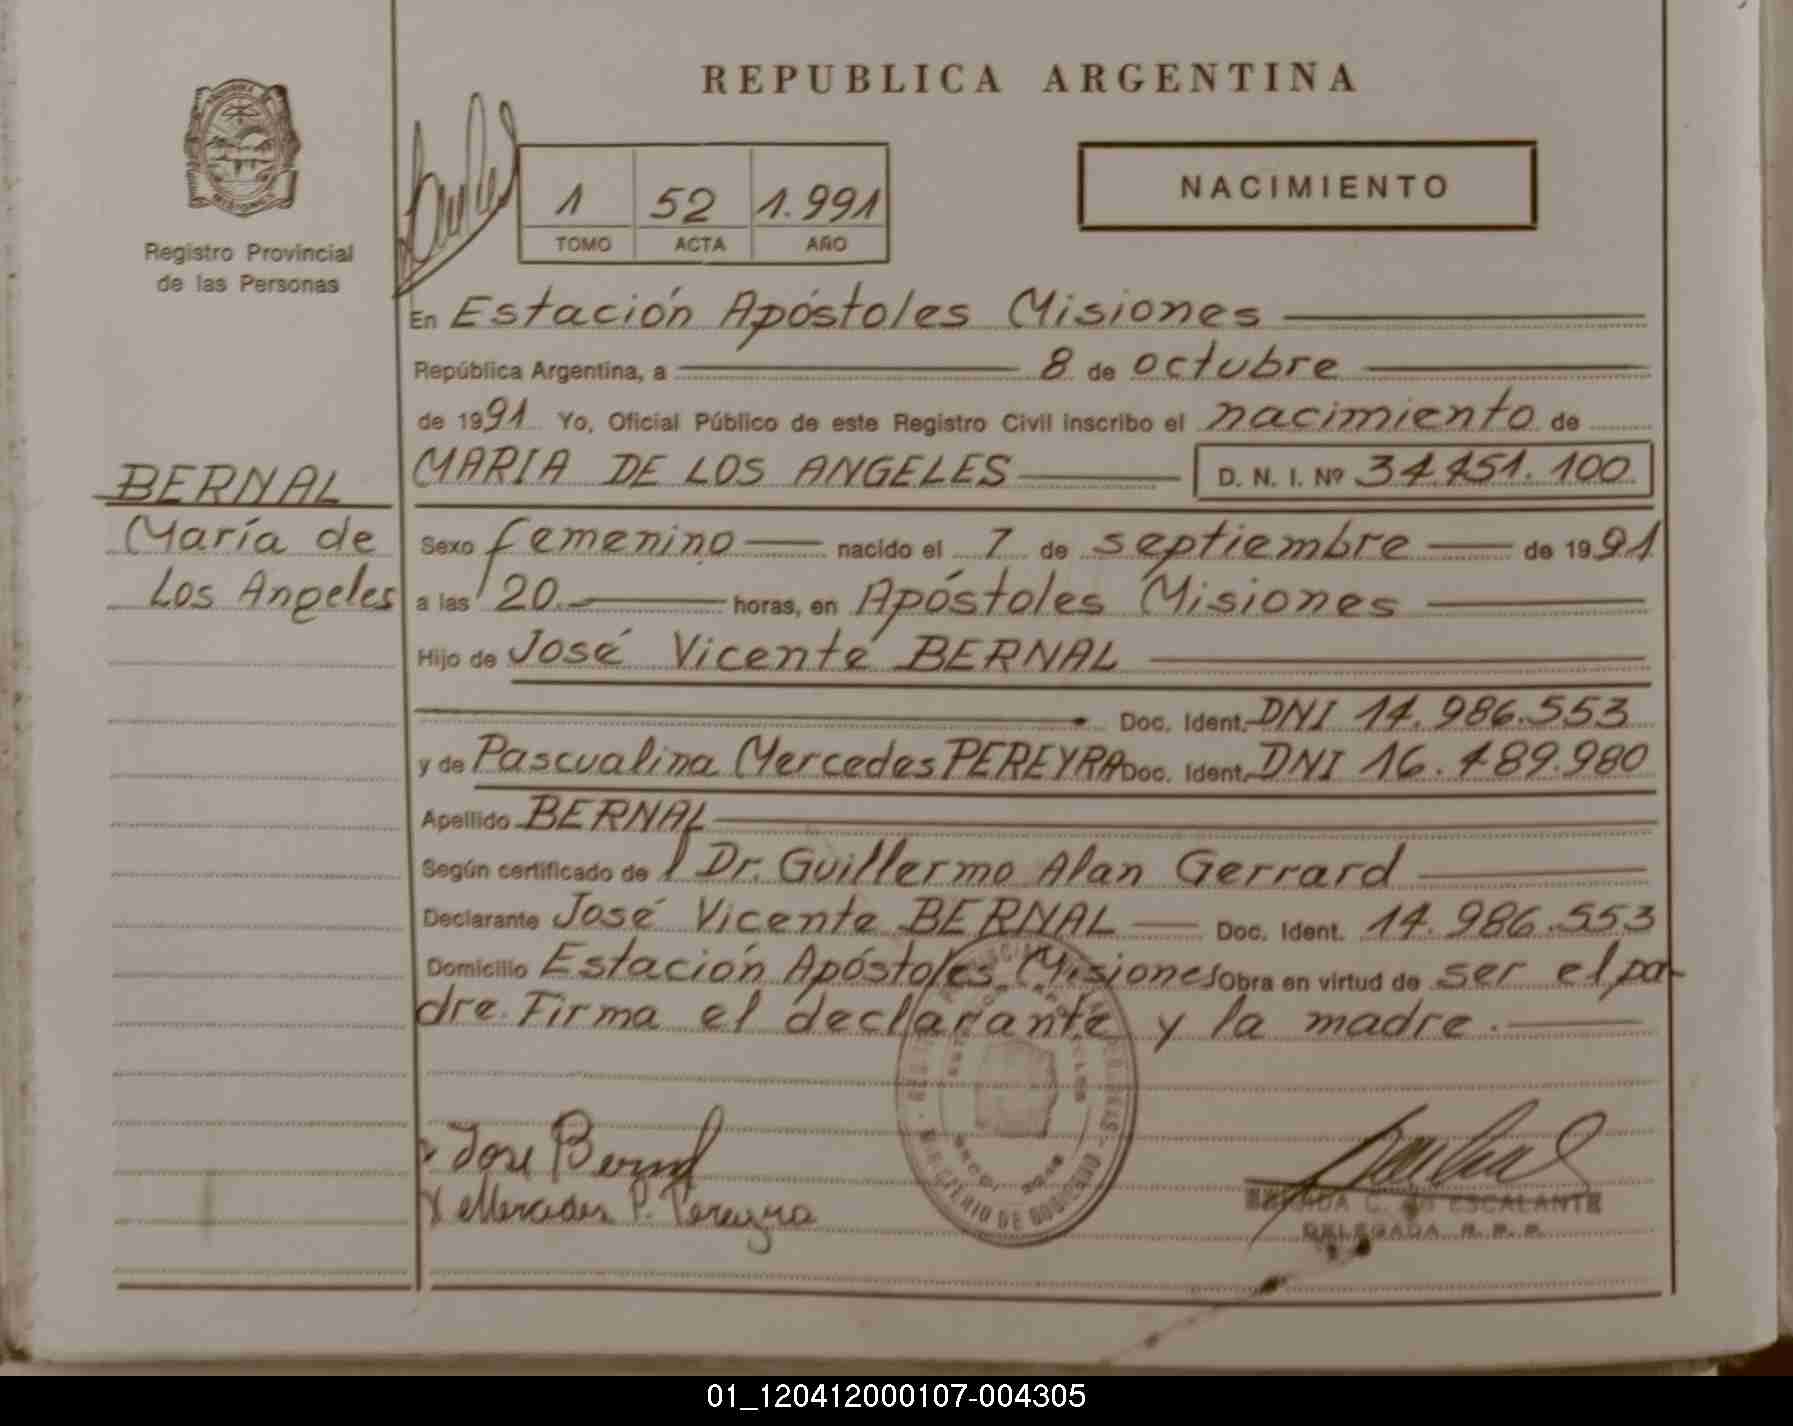 REPUBLICA ARGENTINA
NACIMIENTO
1 52 1.991
TOMO ACTA AÑO
Registro Provincial
de las Personas
En Estación Apóstoles Misiones
República Argentina, a 8 de octubre
de 1991 Yo, Oficial Público de este Registro Civil inscribo el nacimiento de
BERNAL
María de
Los Angeles
MARIA DE LOS ANGELES D. N. I. Nº 34.451.100
Sexo femenino nacido el 7 de septiembre de 1991
a las 20 horas, en Apóstoles Misiones
Hijo de José Vicente BERNAL
Doc. Ident. DNI 14.986.553
y de Pascualina Mercedes PEREYRA Doc. Ident. DNI 16.489.980
Apellido BERNAL
Según certificado de l Dr. Guillermo Alan Gerrard
Declarante José Vicente BERNAL Doc. Ident. 14.986.553
Domicilio Estación Apóstoles Misiones Obra en virtud de ser el pa-
dre. Firma el declarante y la madre.
Jose Bernal
Mercedes P. Pereyra
MINISTERIO DE GOBIERNO
C. DE ESCALANTE
DELEGADA R. P. P.
01_120412000107-004305